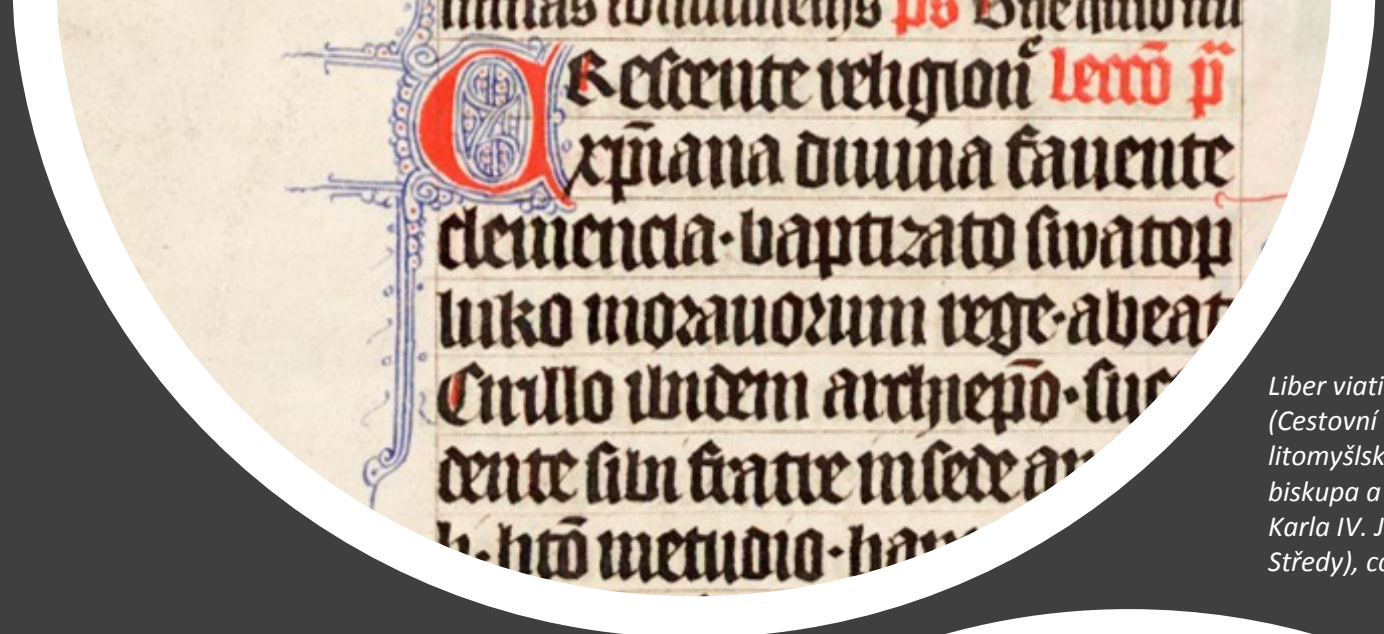 ps
CRescente religionͤ lectō p̄
xp̄iana diuina fauente
clemencia·baptizato swatop
luko morauorum rege·abeat
Cirillo ibidem archiepō·suc
dente sibi fratre in sede
metudio·
Liber viati
(Cestovní
litomyšlsk
biskupa a
Karla IV. J
Středy), co